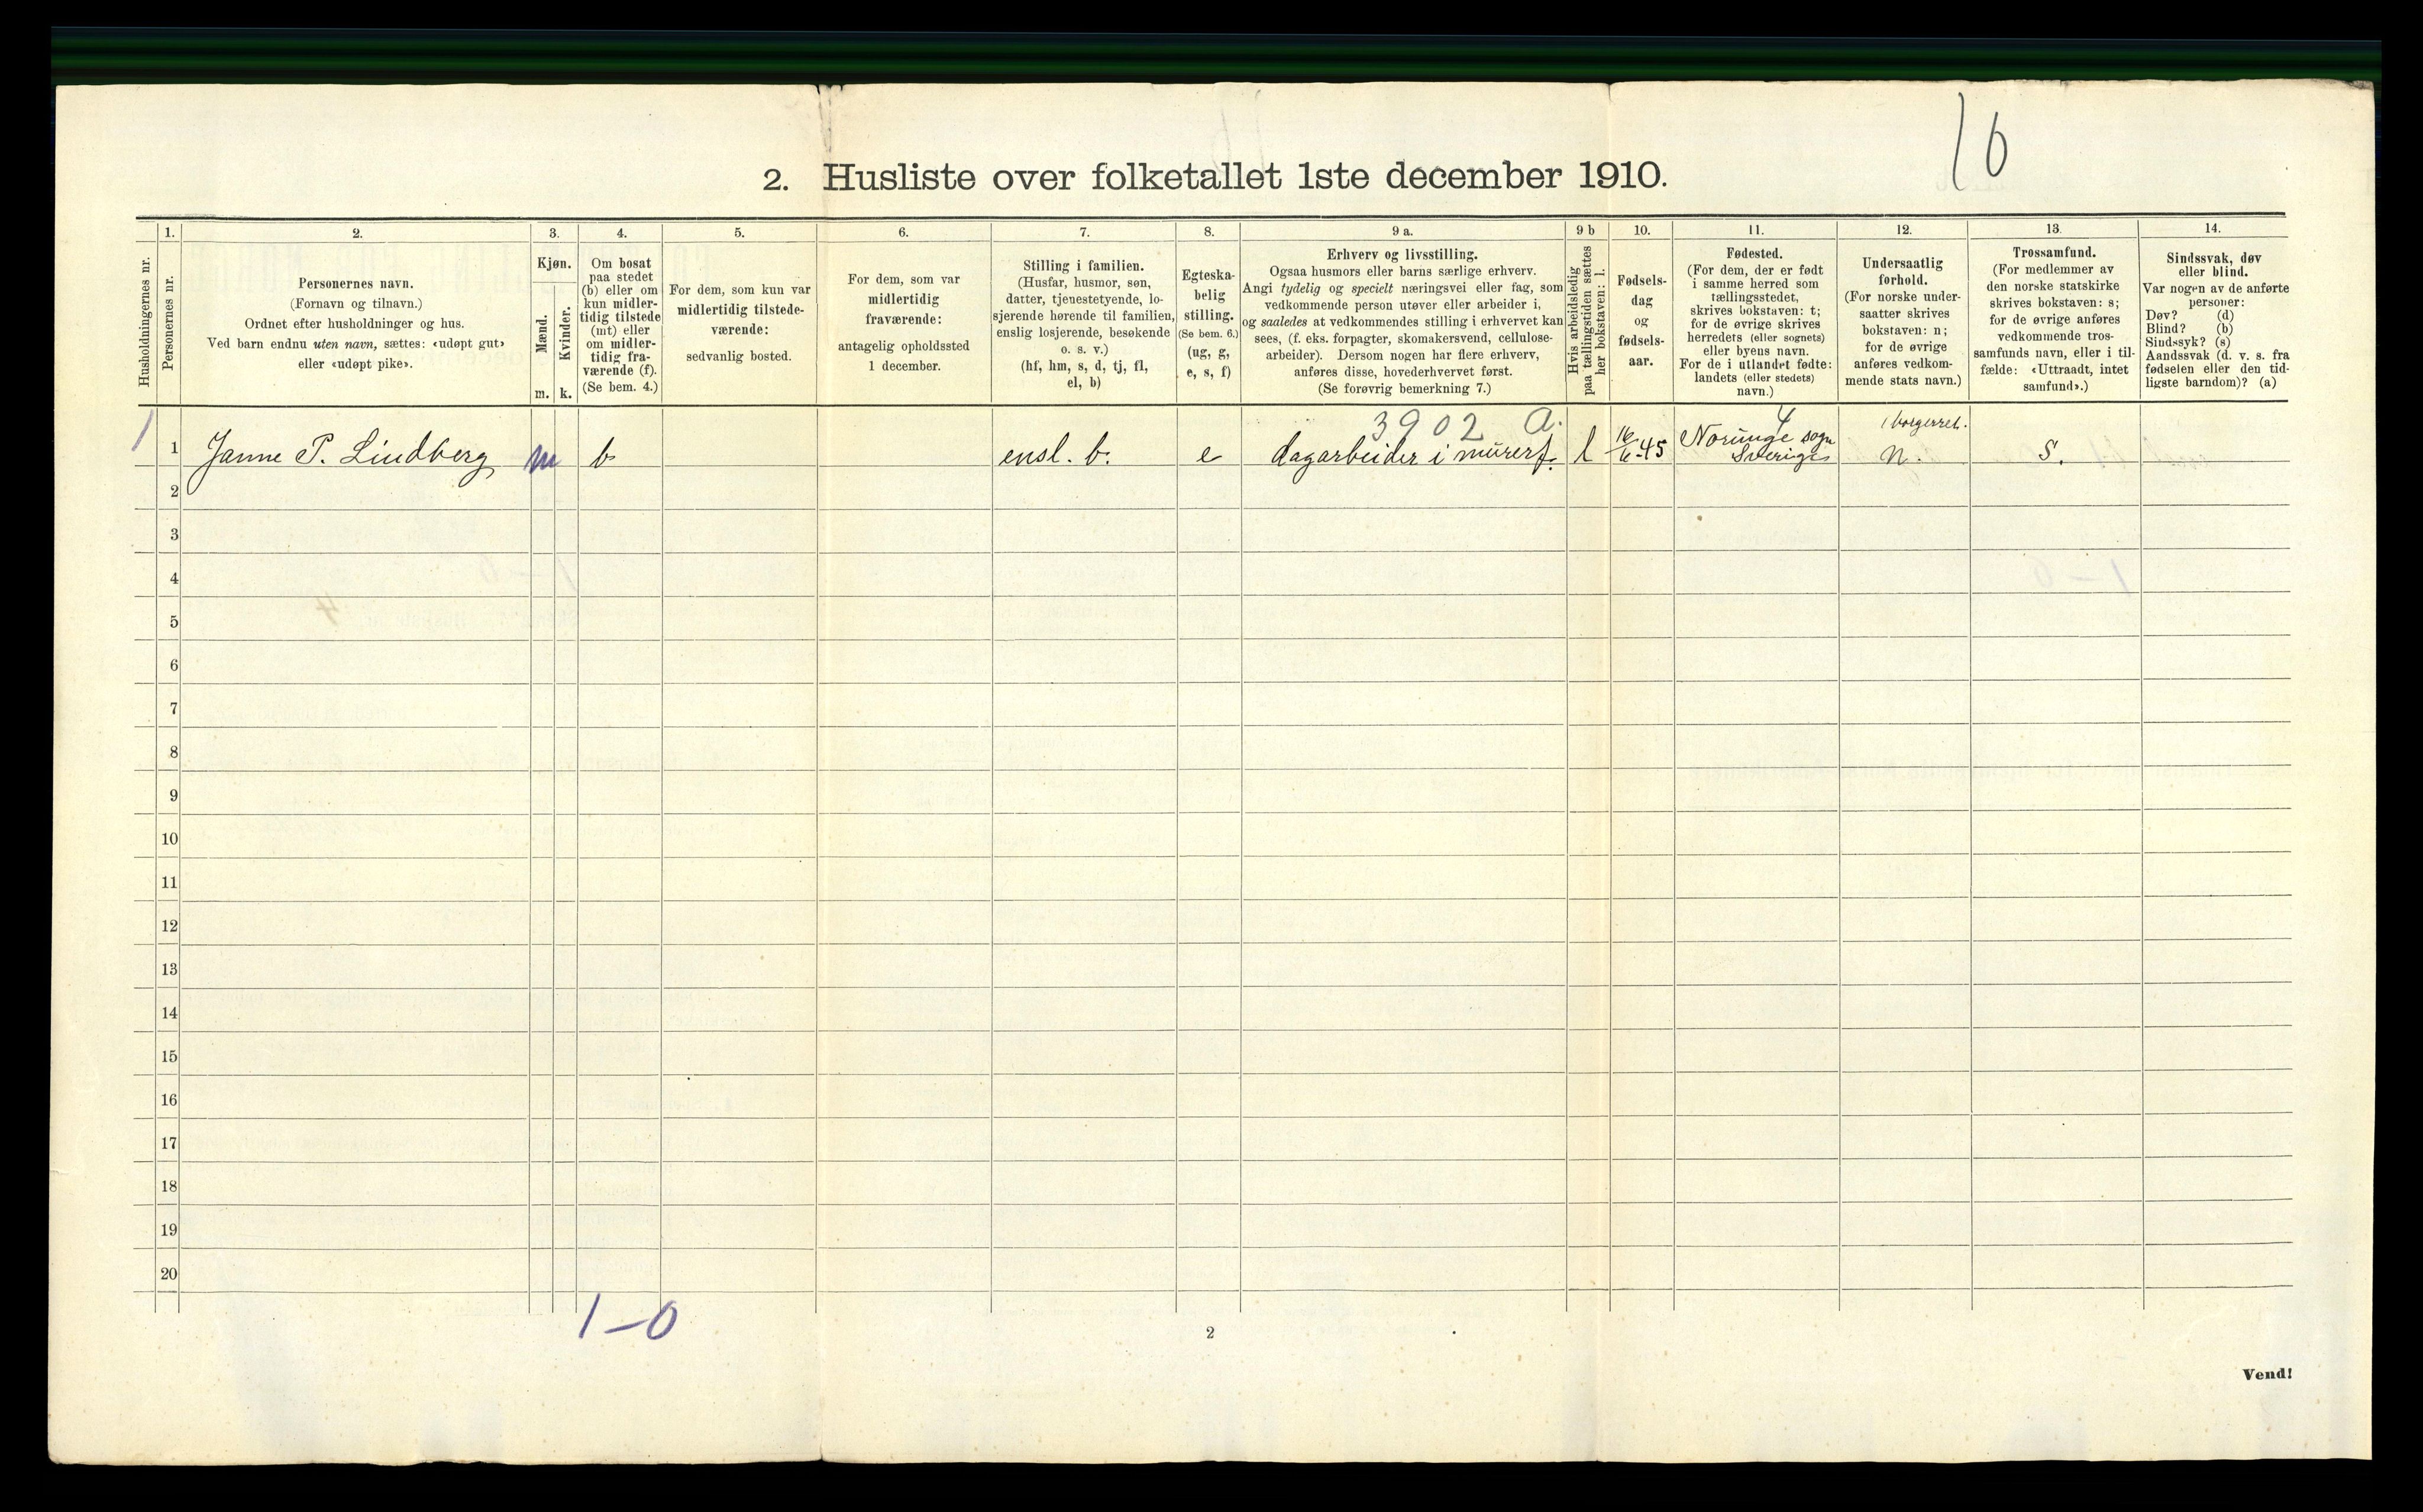 10
2. Husliste over folketallet 1ste december 1910.
Husholdningernes nr.
1.
Personernes nr.
2.
Personernes navn.
(Fornavn og tilnavn.)
Ordnet efter husholdninger og hus.
Ved barn endnu uten navn, sættes: «udøpt gut»
eller «udøpt pike».
3.
Kjøn.
Mænd.
Kvinder.
m. k.
4.
Om bosat
paa stedet
(b) eller om
kun midler-
tidig tilstede
(mt) eller
om midler-
tidig fra-
værende (f).
(Se bem. 4.)
5.
For dem, som kun var
midlertidig tilstede-
værende:
sedvanlig bosted.
6.
For dem, som var
midlertidig
fraværende:
antagelig opholdssted
1 december.
7.
Stilling i familien.
(Husfar, husmor, søn,
datter, tjenestetyende, lo-
sjerende hørende til familien,
enslig losjerende, besøkende
o. s. v.)
(hf, hm, s, d, tj, fl,
el, b)
8.
Egteska-
belig
stilling.
(Se bem. 6.)
(ug, g,
e, s, f)
9 a.
Erhverv og livsstilling.
Ogsaa husmors eller barns særlige erhverv.
Angi tydelig og specielt næringsvei eller fag, som
vedkommende person utøver eller arbeider i,
og saaledes at vedkommendes stilling i erhvervet kan
sees, (f. eks. forpagter, skomakersvend, cellulose-
arbeider). Dersom nogen har flere erhverv,
anføres disse, hovederhvervet først.
(Se forøvrig bemerkning 7.)
9 b
Hvis arbeidsledig
paa tællingstiden sættes
her bokstaven: l.
10.
Fødsels-
dag
og
fødsels-
aar.
11.
Fødested.
(For dem, der er født
i samme herred som
tællingsstedet,
skrives bokstaven: t;
for de øvrige skrives
herredets (eller sognets)
eller byens navn.
For de i utlandet fødte:
landets (eller stedets)
navn.)
12.
Undersaatlig
forhold.
(For norske under-
saatter skrives
bokstaven: n;
for de øvrige
anføres vedkom-
mende stats navn.)
13.
Trossamfund.
(For medlemmer av
den norske statskirke
skrives bokstaven: s;
for de øvrige anføres
vedkommende tros-
samfunds navn, eller i til-
fælde: «Uttraadt, intet
samfund».)
14.
Sindssvak, døv
eller blind.
Var nogen av de anførte
personer:
Døv? (d)
Blind? (b)
Sindssyk? (s)
Aandssvak (d. v. s. fra
fødselen eller den tid-
ligste barndom)? (a)
3902 a. 4 borgerret.
1 1 Janne P. Lindberg m b ensl. b. e dagarbeider i murerf. l 16/6-45 Norunge sogn
Sverige n. S.
2
3
4
5
6
7
8
9
10
11
12
13
14
15
16
17
18
19
20
1-0
2
Vend!